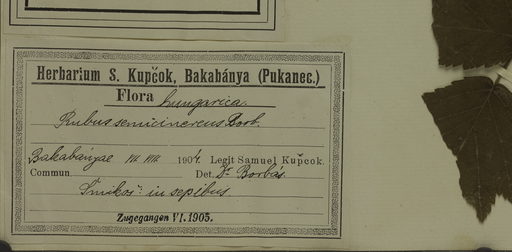 Herbarium S. Kupčok, Bakabánya (Pukanec.)
Flora hungarica.
Rubus semicinereus Borb.
Bakabányae VII. VIII. 1904. Legit Samuel Kupčok.
Commun. Det. Dr Borbás.
"Smikos" in sepibus.
Zugegangen VI. 1905.